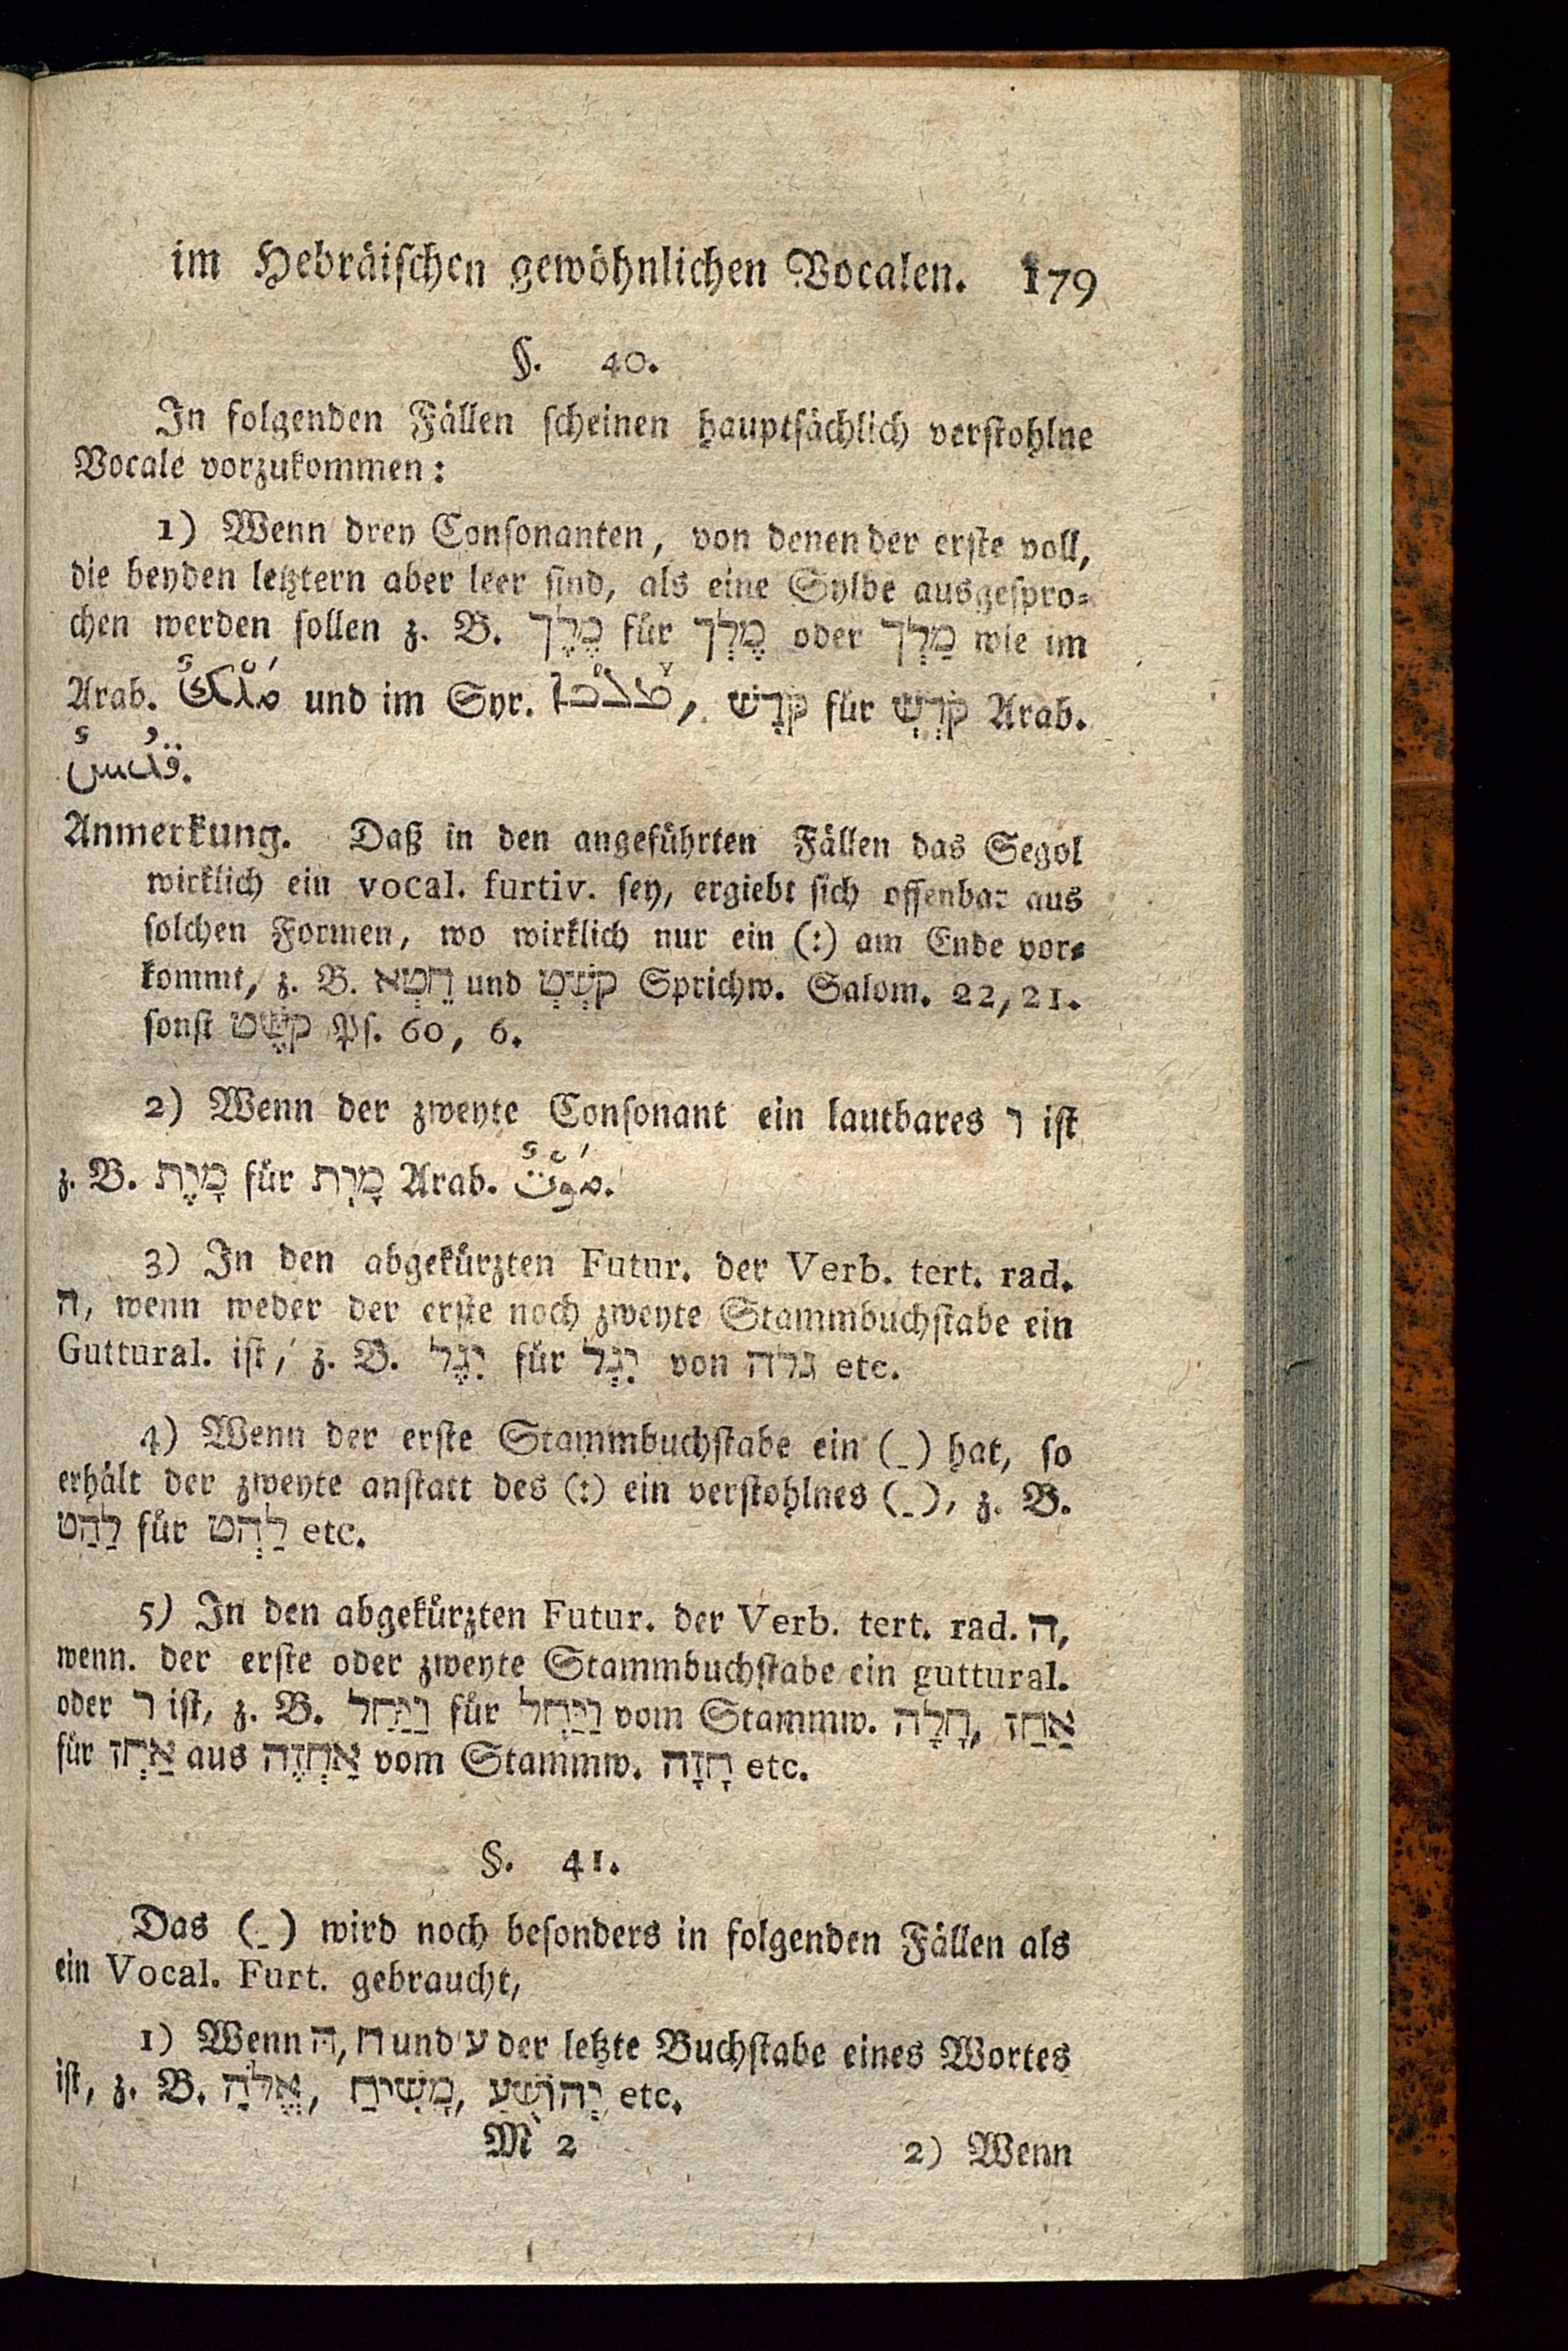 im Hebräischen gewöhnlichen Vocalen. 179
§. 40.
In folgenden Fällen scheinen hauptsächlich verstohlne
Vocale vorzukommen:
1) Wenn drey Consonanten, von denen der erste voll,
die beyden letztern aber leer sind, als eine Sylbe ausgespro-
chen werden sollen z. B. מֶלֶךְ für מֶלְךְ oder מַלְךְ wie im
Arab. مَلْكٌ und im Syr. ܡܠܟܐ, קֹדֶשׁ für קֹדְשְׁ Arab.
قدُسٌ.
Anmerkung. Daß in den angeführten Fällen das Segol
wirklich ein vocal. furtiv. sey, ergiebt sich offenbar aus
solchen Formen, wo wirklich nur ein (:) am Ende vor-
kommt, z. B. חֵטְא und קֹשְׁטְ Sprichw. Salom. 22, 21.
sonst קֹשֶׁט Ps. 60, 6.
2) Wenn der zweyte Consonant ein lautbares ו ist
z. B. מָוֶת für מָוְת Arab. مَوْتٌ.
3) In den abgekürzten Futur. der Verb. tert. rad.
ה, wenn weder der erste noch zweyte Stammbuchstabe ein
Guttural. ist, z. B. יִגֶל für יִגְל von גלה etc.
4) Wenn der erste Stammbuchstabe ein (-) hat, so
erhält der zweyte anstatt des (:) ein verstohlnes (-), z. B.
לַהַט für לַהְט etc.
5) In den abgekürzten Futur. der Verb. tert. rad. ה,
wenn. der erste oder zweyte Stammbuchstabe ein guttural.
oder ר ist, z. B. וַיַּחַל für וַיַּחְל vom Stammw. חָלָה, אַחַז
für אַחְז aus אַחְזֶה vom Stammw. חָזָה etc.
§. 41.
Das (-) wird noch besonders in folgenden Fällen als
ein Vocal. Furt. gebraucht,
1) Wenn ה, ח und ע der letzte Buchstabe eines Wortes
ist, z. B. אֱלֹהַּ, מָשִׁיחַ, יְהוֹשֻׁעַ etc.
M 2
2) Wenn